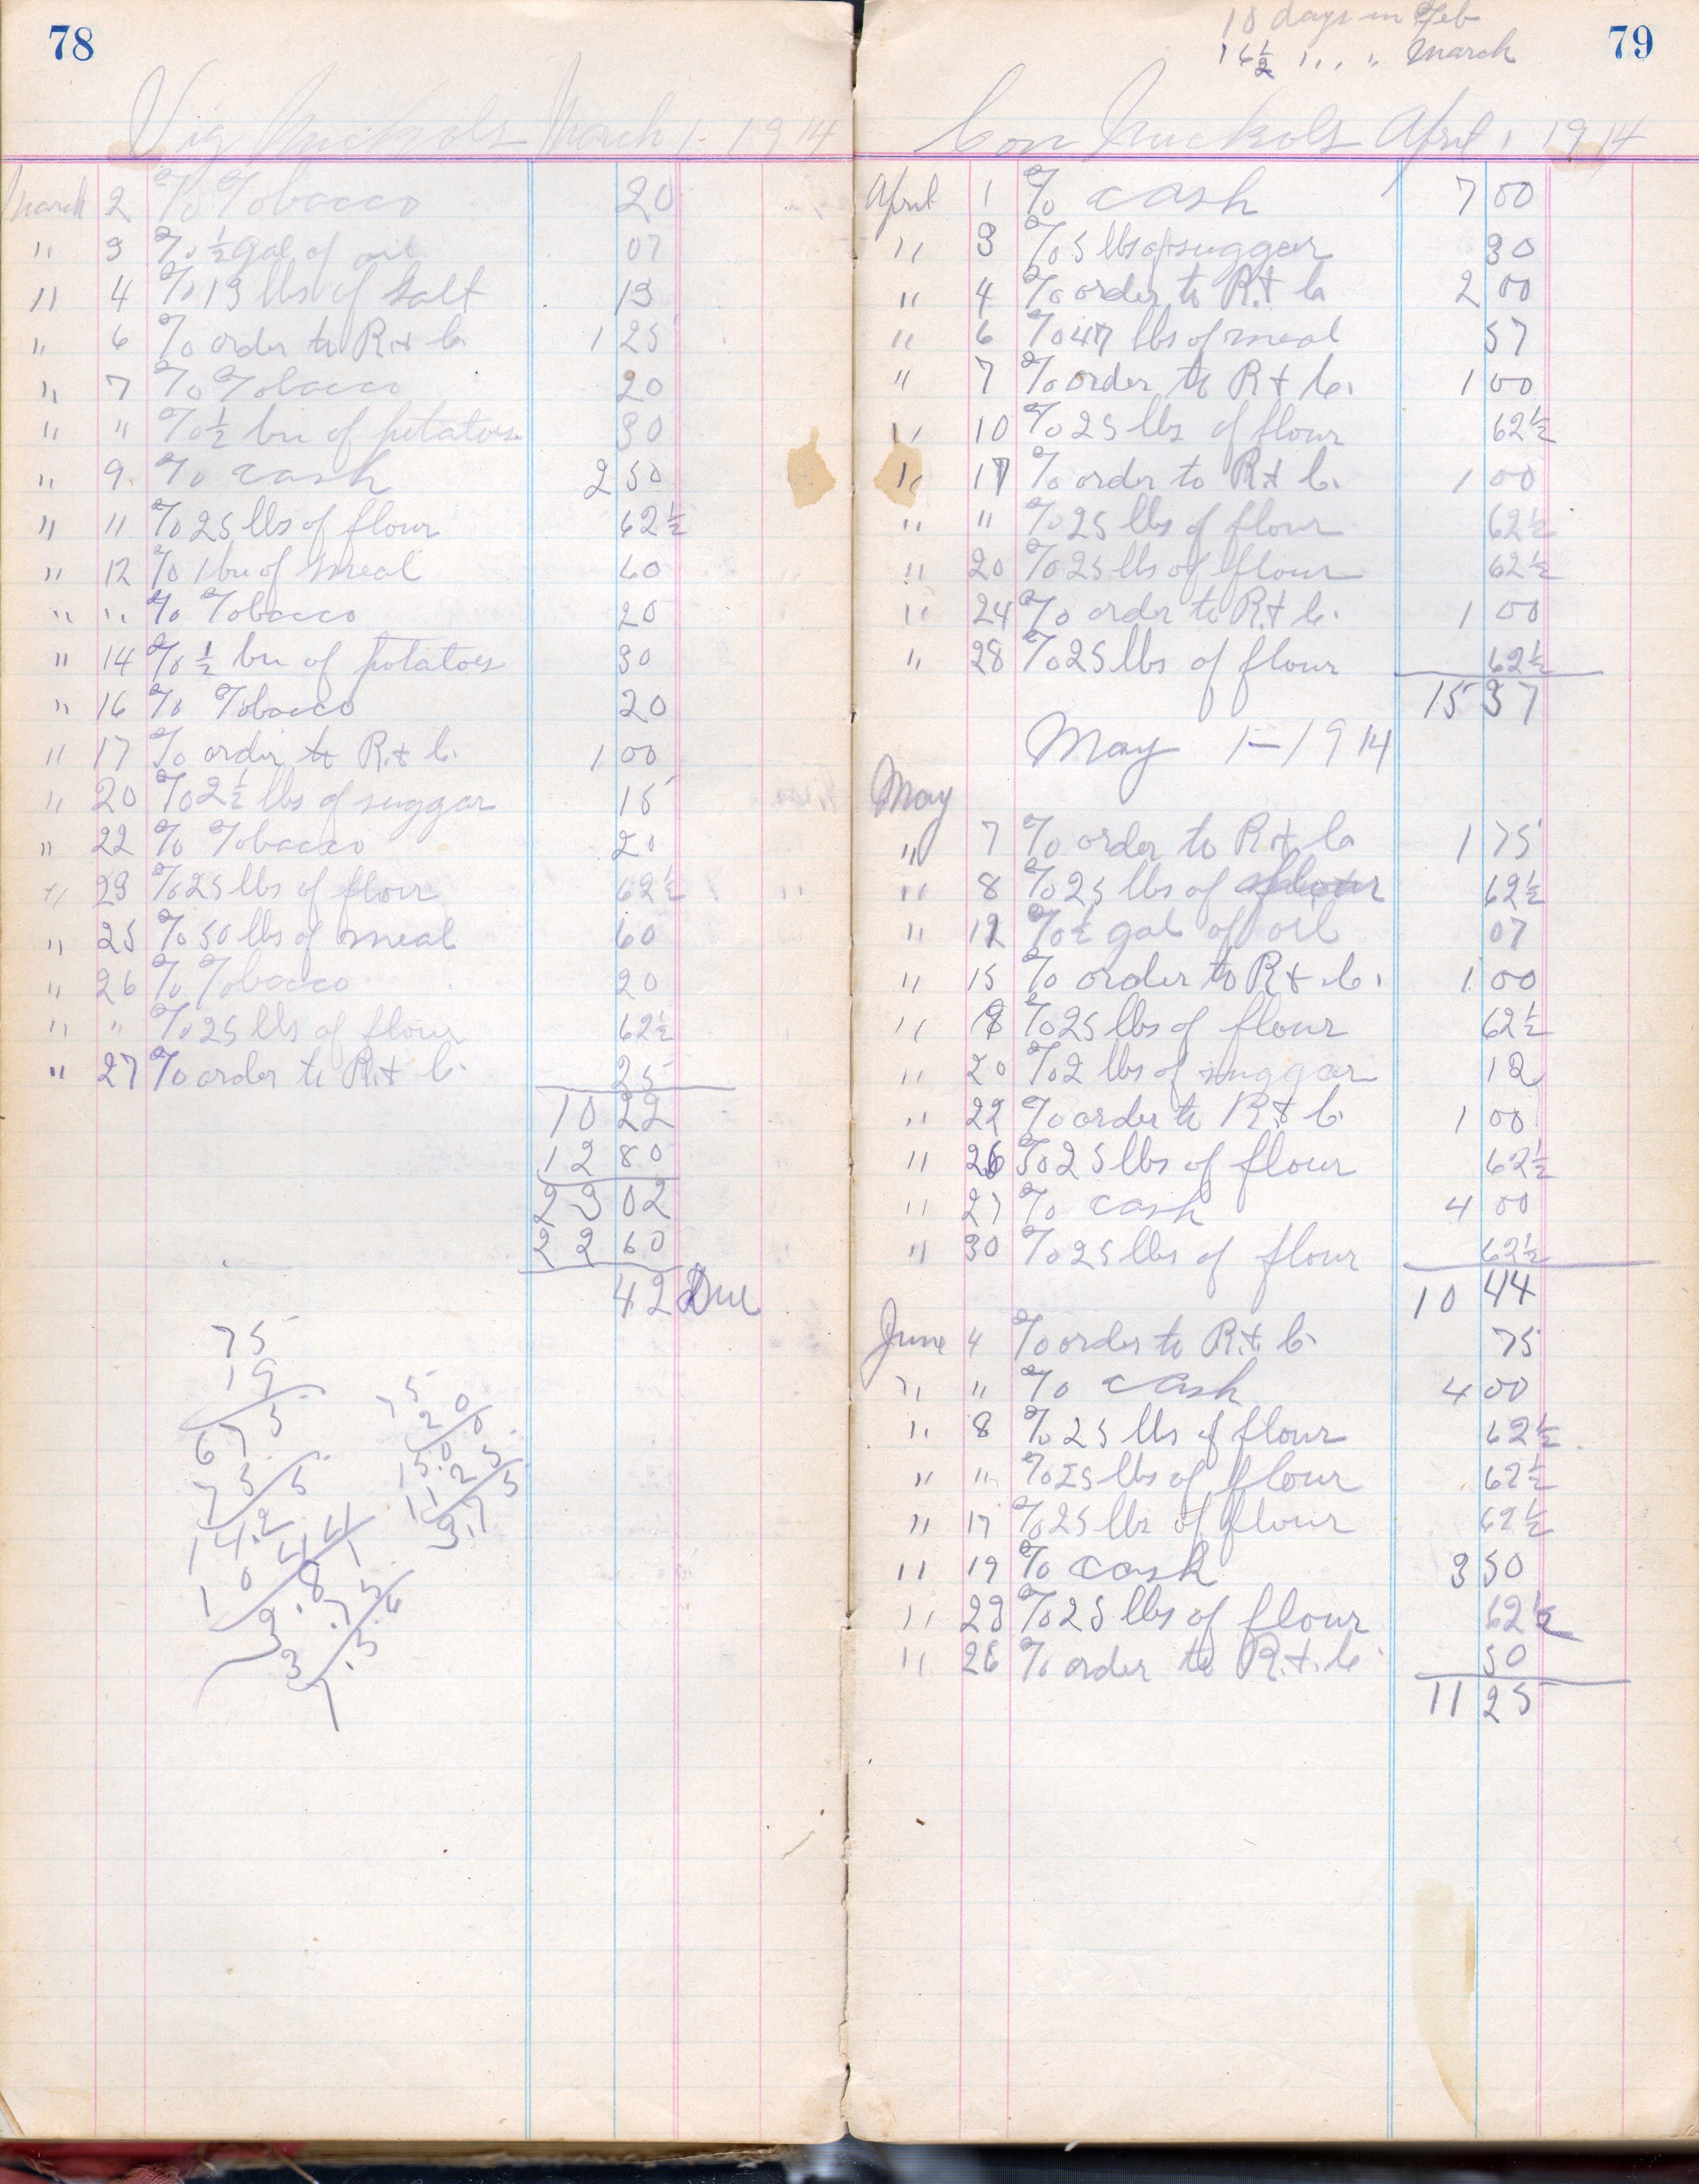 78
Vig Nuckols March 1 - 1914
March 2 % Tobacco 20
" 3 % ½ Gal of oil 07
" 4 % 13 lbs of Salt 13
" 6 % order to R. & Co 1 25
" 7 % Tobacco 20
" " % ½ bu of potatoes 30
" 9 % cash 2 50
" 11 % 25 lbs of flour 62½
" 12 % 1 bu of meal 60
" " % Tobacco 20
" 14 % ½ bu of potatoes 30
" 16 % Tobacco 20
" 17 % order to R. & Co. 1 00
" 20 % 2½ lbs of suggar 15
" 22 % Tobacco 20
" 23 % 25 lbs of flour 62½
" 25 % 50 lbs of meal 60
" 26 % Tobacco 20
" " % 25 lbs of flour 62½
" 27 % order to R. & Co. 25
10 22
12 80
23 02
22 60
42 Due
75
19
675
75
14.25
10.44
3.81
3.75
7.56
75
20
15.00
11.25
3.75
18 days in Feb
16½ " " March
79
Con Nuckols April 1 1914
April 1 % cash 7 00
" 3 % 5 lbs of suggar 30
" 4 % order to R. & Co 2 00
" 6 % 47 lbs of meal 57
" 7 % order to R & Co. 1 00
" 10 % 25 lbs of flour 62½
" 17 % order to R & Co. 1 00
" " % 25 lbs of flour 62½
" 20 % 25 lbs of flour 62½
" 24 % order to R. & Co. 1 00
" 28 % 25 lbs of flour 62½
15 37
May 1 - 1914
May
" 7 % order to R. & Co 1 75
" 8 % 25 lbs of flour 62½
" 12 % ½ gal of oil 07
" 15 % order to R & Co. 1 00
" % 25 lbs of flour 62½
" 20 % 2 lbs of suggar 12
" 22 % order to R. & Co. 1 00
" 26 % 25 lbs of flour 62½
" 27 % cash 4 00
" 30 % 25 lbs of flour 62½
10 44
June 4 % order to R. & Co. 75
" " % cash 4 00
" 8 % 25 lbs of flour 62½
" " % 25 lbs of flour 62½
" 17 % 25 lbs of flour 62½
" 19 % cash 3 50
" 23 % 25 lbs of flour 62½
" 26 % order to R. & Co 50
11 25